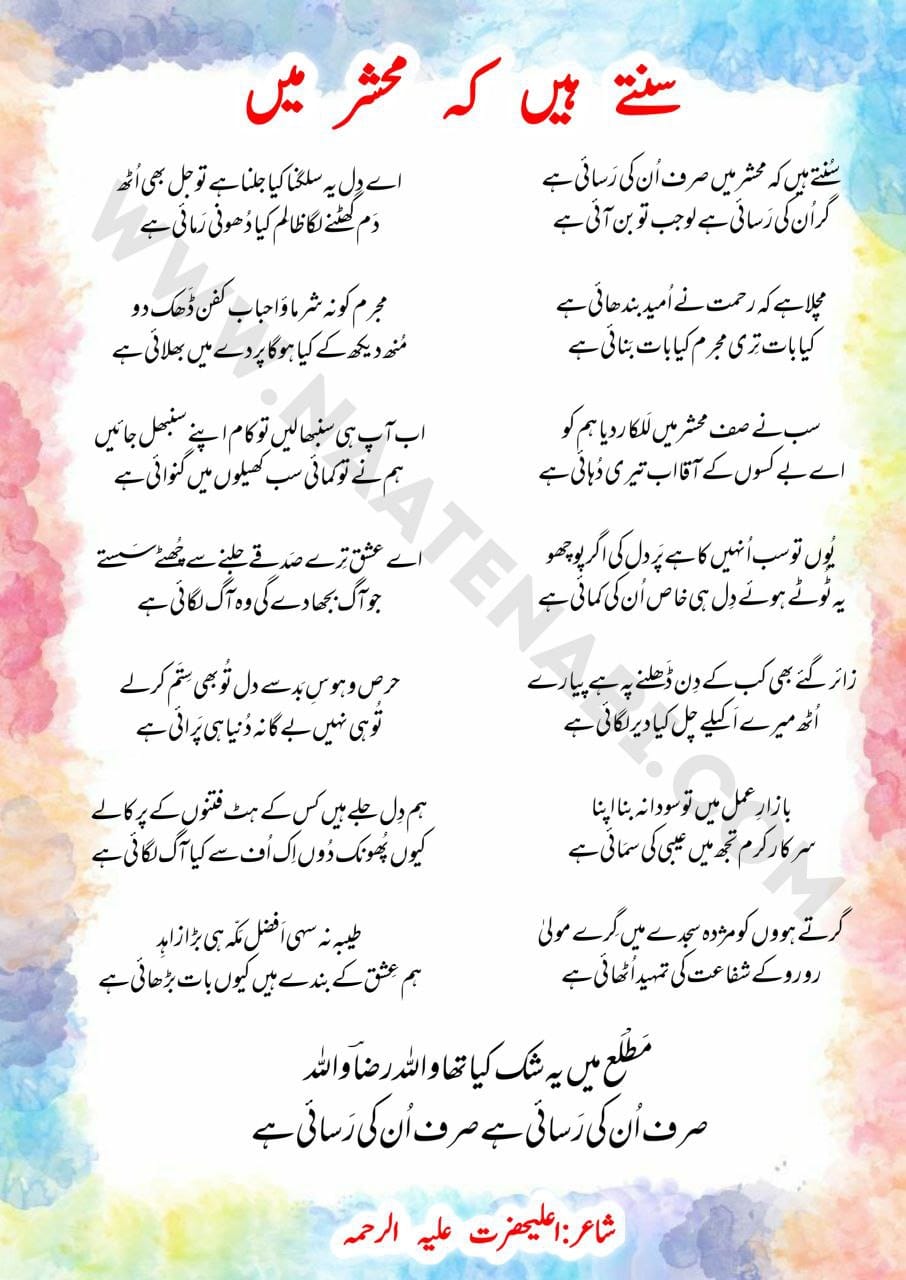 سنتے ہیں کہ محشر میں
سُنتے ہیں کہ محشر میں صرف اُن کی رَسائی ہے
گر اُن کی رَسائی ہے لو جب تو بن آئی ہے
مچلا ہے کہ رحمت نے اُمید بندھائی ہے
کیا بات تِری مجرم کیا بات بَنائی ہے
سب نے صف محشر میں لَلکار دیا ہم کو
اے بے کسوں کے آقا اب تیری دُہائی ہے
یُوں تو سب اُنہیں کا ہے پَر دل کی اگر پوچھو
یہ ٹُوٹے ہوئے دِل ہی خاص اُن کی کمائی ہے
زائر گئے بھی کب کے دِن ڈَھلنے پہ ہے پیارے
اُٹھ میرے اَکیلے چل کیا دیر لگائی ہے
بازارِ عمل میں تو سودا نہ بنا اپنا
سرکار کرم تجھ میں عیبی کی سَمائی ہے
گرتے ہووں کو مژدہ سجدے میں گِرے مولیٰ
رو رو کے شفاعت کی تمہید اُٹھائی ہے
اے دِل یہ سلگنا کیا جلنا ہے تو جل بھی اُٹھ
دَم گُھٹنے لگا ظالم کیا دُھونی رَمائی ہے
مجرم کو نہ شرماؤ احباب کفن ڈَھک دو
مُنھ دیکھ کے کیا ہوگا پردے میں بھلائی ہے
اب آپ ہی سنبھالیں تو کام اپنے سنبھل جائیں
ہم نے تو کمائی سب کھیلوں میں گنوائی ہے
اے عشق تِرے صَدقے جلنے سے چُھٹے سَستے
جو آگ بجھا دے گی وہ آگ لگائی ہے
حرص و ہوسِ بَد سے دل تُو بھی سِتَم کر لے
تُو ہی نہیں بے گانہ دُنیا ہی پَرائی ہے
ہم دِل جلے ہیں کس کے ہٹ فتنوں کے پرکالے
کیوں پُھونک دُوں اِک اُف سے کیا آگ لگائی ہے
طیبہ نہ سہی اَفضل مکّہ ہی بڑا زاہِد
ہم عِشق کے بندے ہیں کیوں بات بڑھائی ہے
مَطْلَع میں یہ شک کیا تھا واللہ رضاؔ واللہ
صرف اُن کی رَسائی ہے صرف اُن کی رَسائی ہے
شاعر:اعلیحضرت علیہ الرحمہ
WWW.NAATENABI.COM